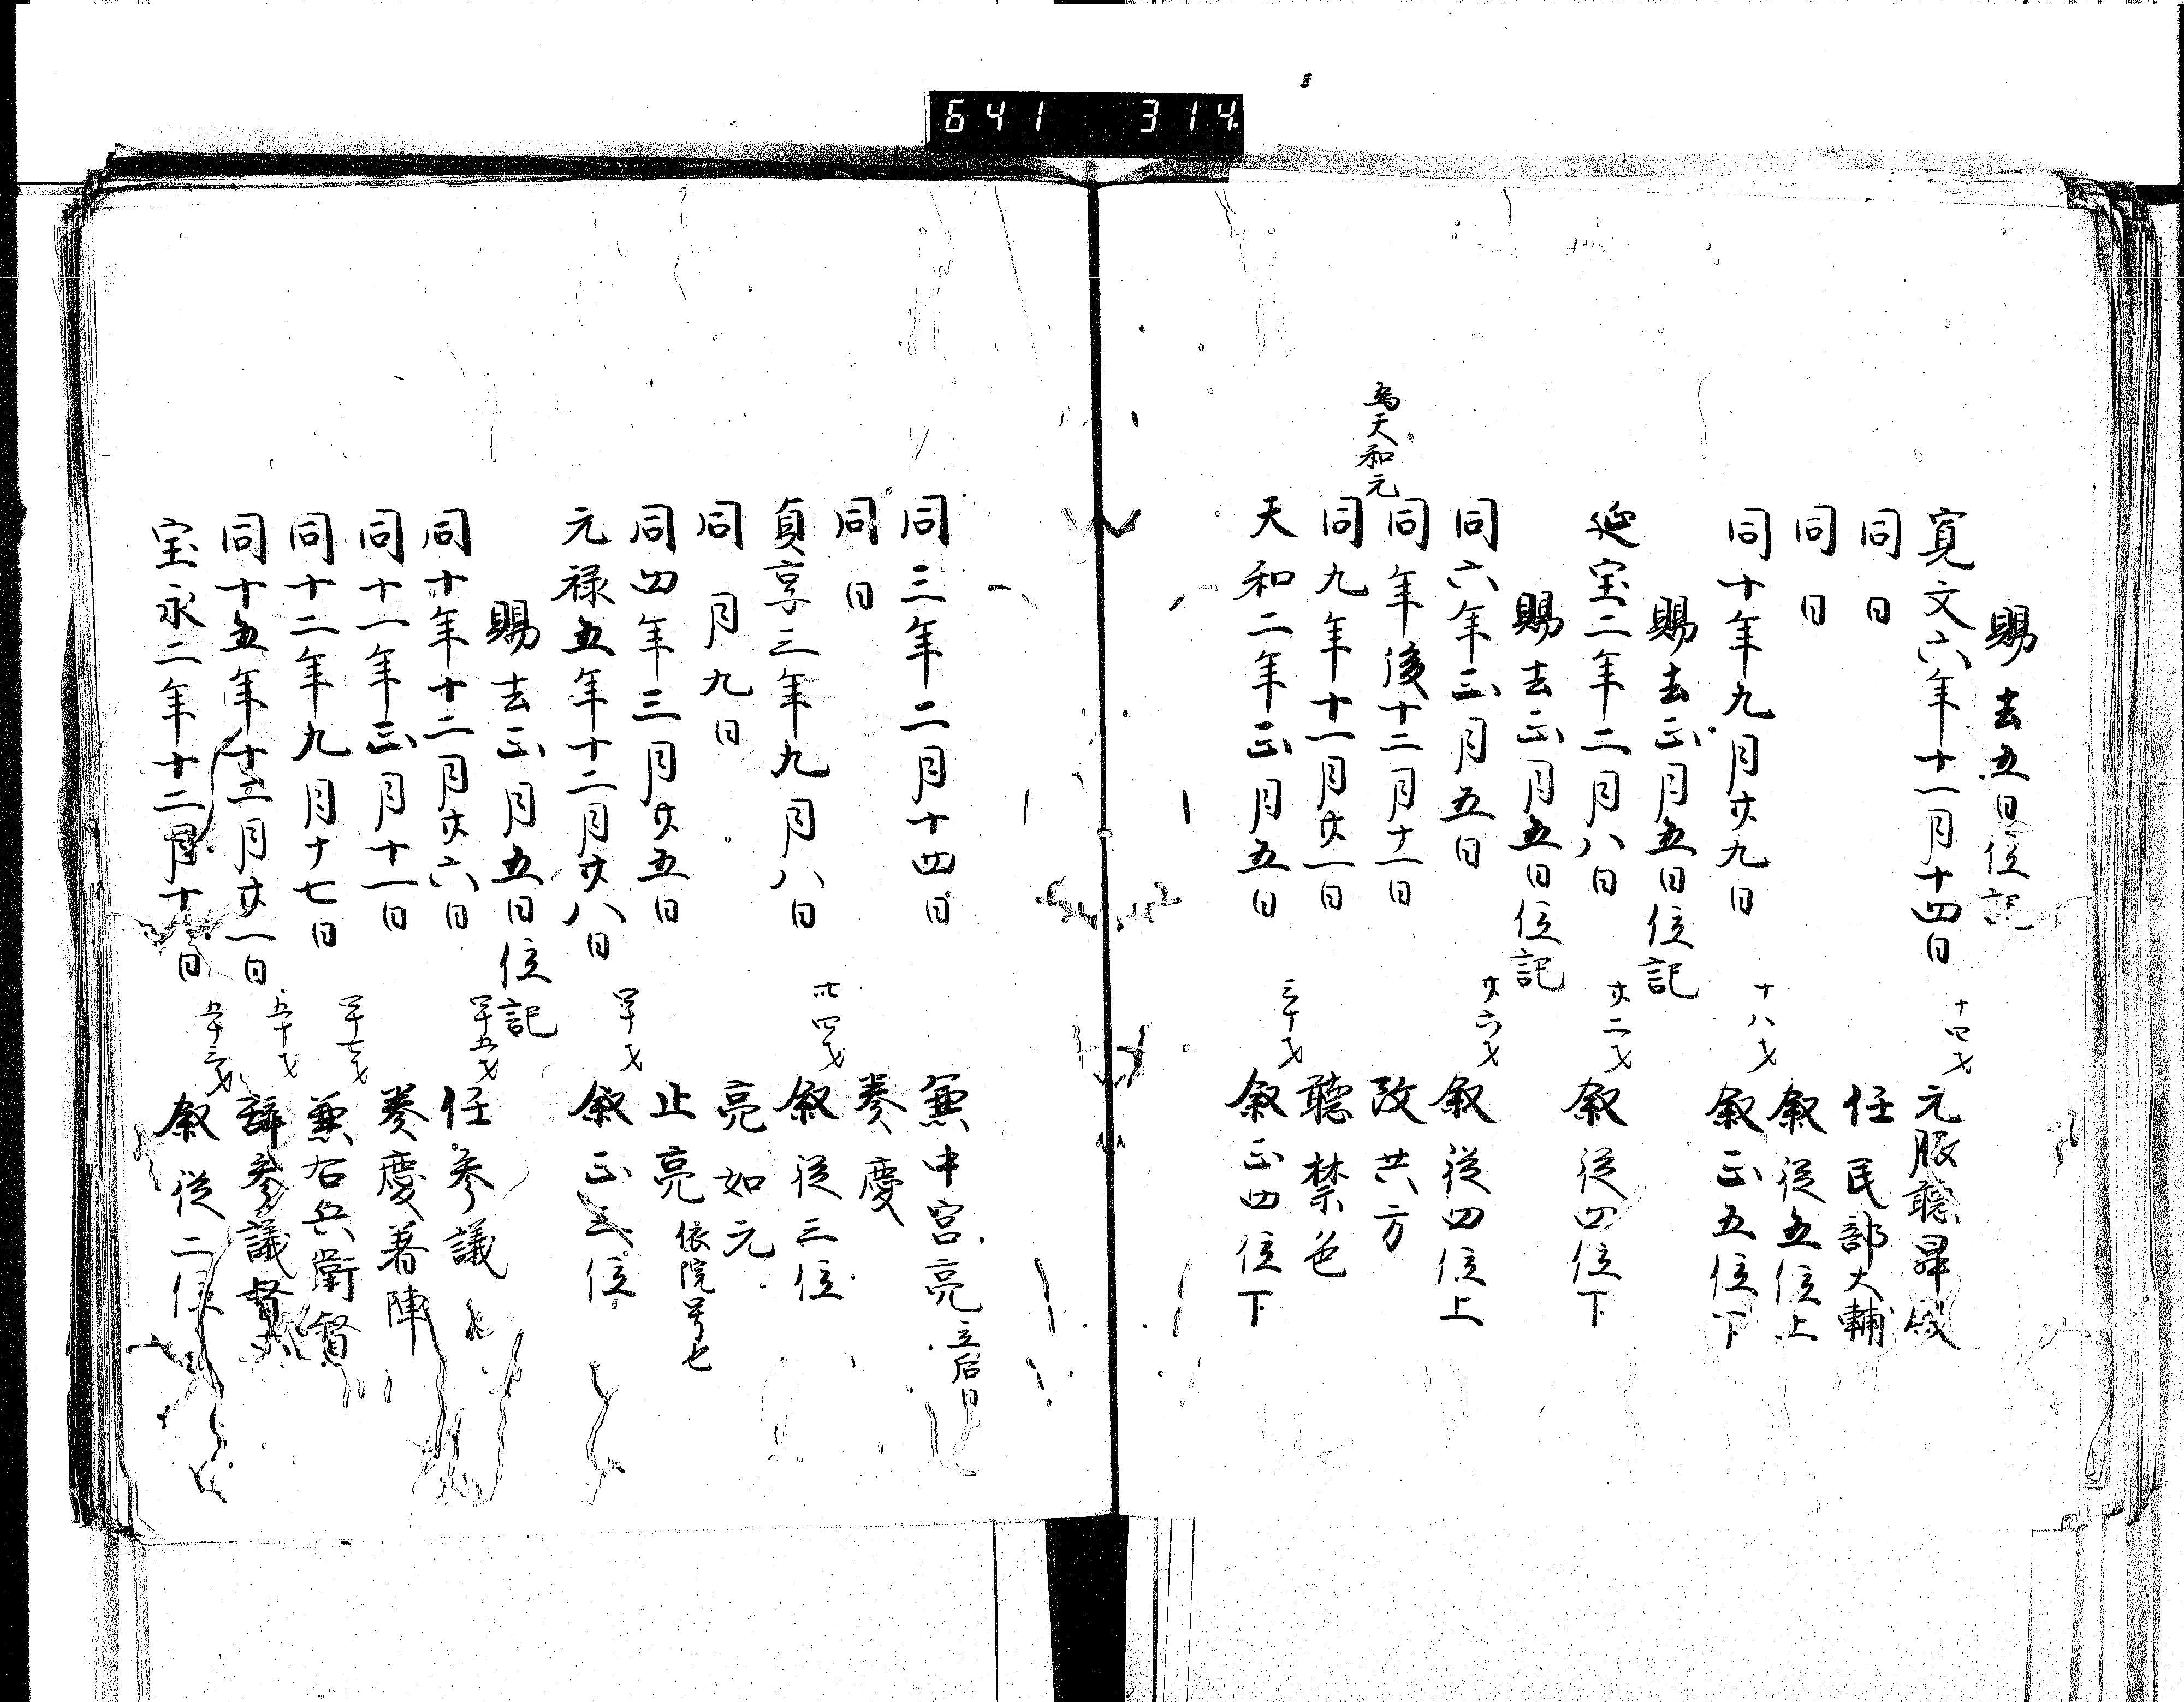 641 314
賜去五日位記
寛文六年十一月十四日 十四才 元服聴昇殿
同日 任民部大輔
同日 叙従五位上
同十年九月廿九日 十八才 叙正五位下
賜去正月五日位記
延宝二年二月八日 廿二才 叙従四位下
賜去正月五日位記
同六年正月五日 廿六才 叙従四位上
為天和元
同年後十二月十一日 改共方
同九年十一月廿一日 聴禁色
天和二年正月五日 三十才 叙正四位下
同三年二月十四日 兼中宮亮 立后日
同日 奏慶
貞享三年九月八日 卅四才 叙従三位
同月九日 亮如元
同四年三月廿五日 止亮 依院号也
元禄五年十二月廿八日 四十才 叙正三位
賜去正月五日位記
同十年十二月廿六日 四十五才 任参議
同十一年正月十一日 奏慶着陣
同十二年九月十七日 四十七才 兼右兵衛督
同十五年十二月廿一日 五十才 辞参議督
宝永二年十二月十日 五十三才 叙従二位